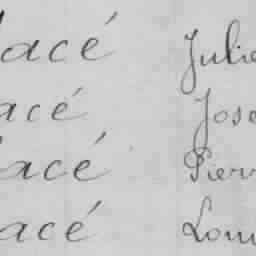 lacé Julie
acé Jose
acé Pierr
acé Loui